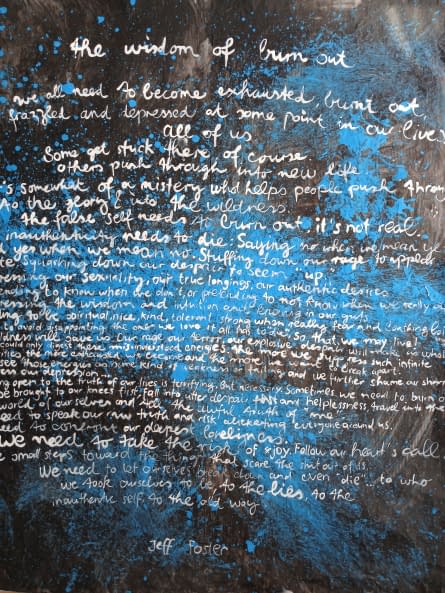 the wisdom of burn out
we all need to become exhausted, burnt out,
frazzled and depressed at some point in our live
All of us
Some get stuck there of course
others push through into new life
s somewhat of a mistery who helps people push throu
to the glory & into the wildness.
the false self needs to burn out it's not real.
inauthenticity needs to die. Saying no when we mean y
d yes when we mean no. Stuffing down our rage to appear
squashing down our to seem up.
our sexuality, our true longings, our authentic desires
to know when we don't, or pretending to not know when we really
the wisdom and intuition in our guts
to be spiritual, nice, kind, tolerant, strong when really fear and
to avoid disappointing the one we love it all has to go so that we may live!
will save us. Our rage our terror, our explosive
could only these mis the more we such infinite
the more exhausted we become and the more we break apart
see those energies as some kind of weakness and we further shame our
own depression
open to the truth of our lives is terrifying. But necessary. Sometimes we need to burn o
be brought to our knees first. Fall into utter despair and helplessness travel into the
world of ourselves and face the awful truth of
need to speak our raw truth & risk everyone around us.
need to confront our deepest loneliness.
we need to take the of & joy. Follow our heart's call
small steps toward the things that scare the shit out of us.
We need to let ourselves break down and even "die"... to who
we took ourselves to be, to the lies, to the
inauthentic self, to the old way
Jeff Foster